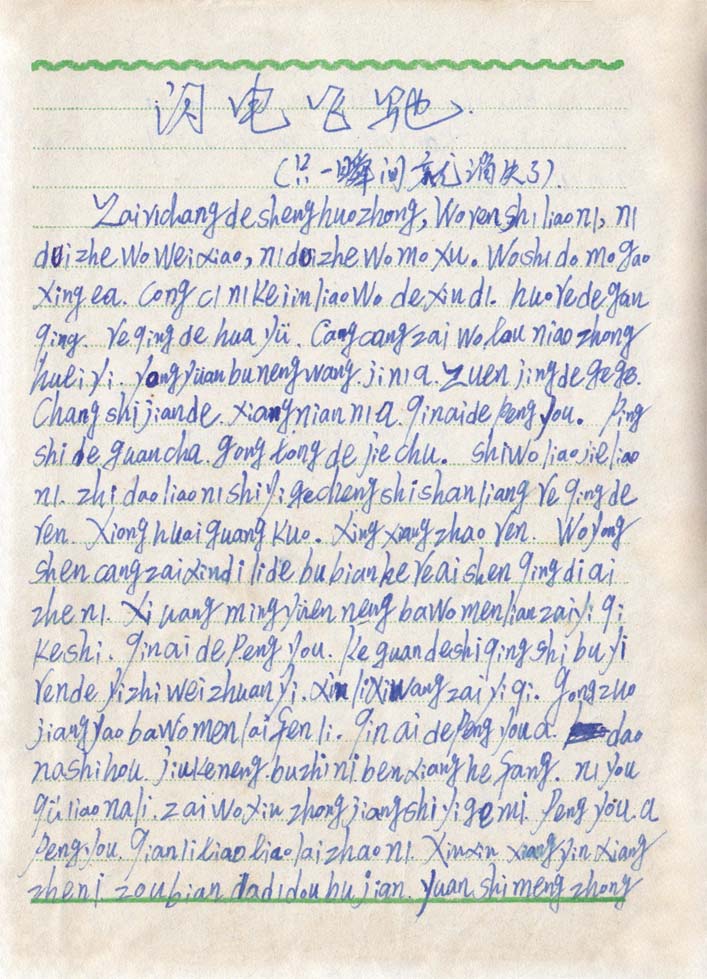 闪电飞驰.
(只一瞬间就消失了).
Zairichangdeshenghuozhong, Worenshiliaoni, ni
duizhe Wo Weixiao, niduizhe Wo mo xu. Woshi do mo gao
xing ea. Cong ci ni ke jin liao Wo de xin di. huo re de gan
qing. re qing de hua yü. Cang cang zai Wo lau niao zhong
huei yi. yong yüan bu neng wang ji ni a. Zuen jing de ge ge.
Chang shi jian de. xiang nian ni a. qinaide Peng you. Ping
shi de guan cha. gong tong de jie chu. shi Wo liao jie liao
ni. zhi dao liao ni shi yi ge cheng shi shan liang re qing de
ren. xiong huai guang kuo. xing xiang zhao ren. Wo yong
shen cang zai xindi li de bu bian he re ai shen qing di ai
zhe ni. xi uang ming yüen neng ba Wo men lian zai yi qi
keshi. qinai de Peng you. ke guan de shi qing shi bu yi
ren de yi zhi wei zhuan yi. xin li xi wang zai yi qi. gong zuo
jiang yao ba Wo men lai fen li. qin ai de Peng you a. dao
na shi hou. jiu ke neng. bu zhi ni ben xiang he fang. ni you
qü liao na li. zai Wo xin zhong jiang shi yi ge mi. Peng you. a
Peng you. qian li tiao tiao lai zhao ni. xin xin xiang yin xiang
zhe ni. zou bian dadi dou bu jian. yuan shi meng zhong